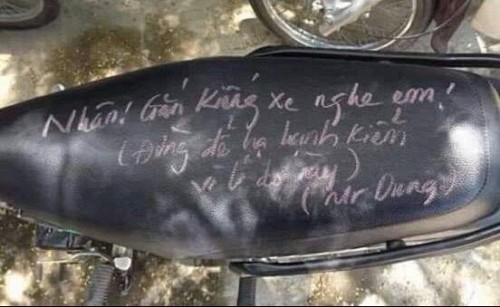 Nhân! Gắn kiếng xe nghe em!
(Đừng để hạ hạnh kiểm
vì lí do này)
(Mr Dung)